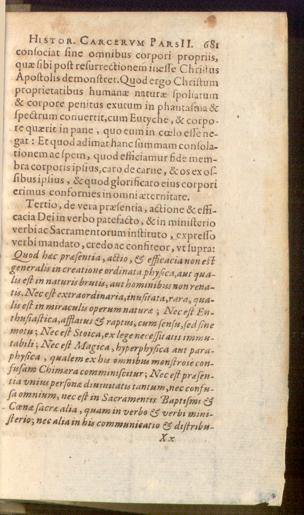 HISTOR. CARCERVM PARS II. 681
consociat sine omnibus corpori propriis,
quæ sibi post resurrectionem inesse Christus
Apostolis demonstret. Quod ergo Christum
proprietatibus humanæ naturæ spoliatum
& corpore penitus exutum in phantasma &
spectrum conuertit, cum Eutyche, & corpo-
re quærit in pane, quo eum in cœlo esse ne-
gat: Et quod adimat hanc summam consola-
tionem ac spem, quod efficiamur fide mem-
bra corporis ipsius, caro de carne, & os ex os-
sibus ipsius, & quod glorificato eius corpori
erimus conformes in omni æternitate.
Tertio, de vera præsentia, actione & effi-
cacia Dei in verbo patefacto, & in ministerio
verbi ac Sacramentorum instituto, expresso
verbi mandato, credo ac confiteor, vt supra:
Quod hæc præsentia, actio, & efficacia non est
generalis in creatione ordinata physica, aut qua-
lis est in naturis brutis, aut hominibus non rena-
tis. Nec est extraordinaria, inusitata, rara, qua-
lis est in miraculis operum naturæ; Nec est En-
thusiastica, afflatus & raptus, cum sensu, sed sine
motu; Nec est Stoica, ex lege necessitatis immu-
tabili; Nec est Magica, hyperphysica aut para-
physica, qualem ex his omnibus monstroie con-
fusam Chimæra comminiscitur; Nec est præsen-
tia vnius personæ diuinitatis tantum, nec confu-
sa omnium, nec est in Sacramentis Baptismi &
Cænæ sacræ alia, quam in verbo & verbi mini-
sterio; nec alia in his communicatio & distribu-
Xx